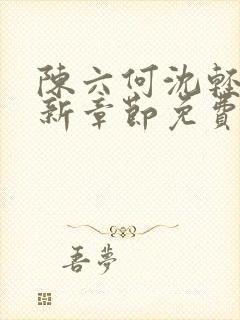 陳六何沈輕
新章節免費
吾夢